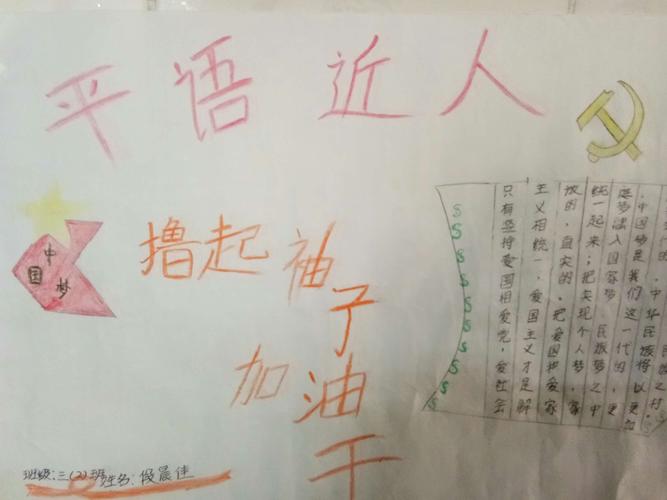 平语近人
中国梦
撸起袖子加油干
只有坚持爱国相爱党，爱社会
主义相统一、爱国主义才是解
的，真实的、把爱国把爱家
统一起来；把实现个人梦，家
庭梦融入国家梦 民族梦之中
，中国梦是我们这一代的，更
的，中华民族将以更加
班级：三(2)班 姓名：段晨佳